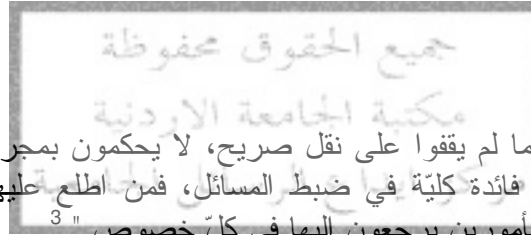 جميع الحقوق محفوظة
مكتبة الجامعة الاردنية
ما لم يقفوا على نقل صريح، لا يحكمون بمجر
فائدة كليّة في ضبط المسائل، فمن اطلع عليه
يرجعون إليها في كلّ خصوص " 3